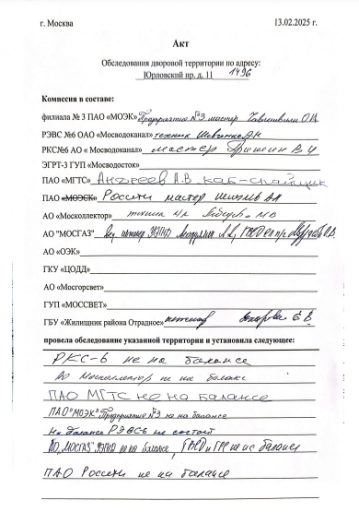 г. Москва 13.02.2025 г.
Акт
Обследования дворовой территории по адресу:
Юрловский пр. д. 11 1496
Комиссия в составе:
филиала № 3 ПАО «МОЭК» Предприятие №3 мастер
РЭВС №6 ОАО «Мосводоканал» техник
РКС№6 АО « Мосводоканал» мастер
ЭГРТ-3 ГУП «Мосводосток»
ПАО «МГТС» Андреев А.В. каб-спайщик
ПАО «МОЭСК» Россети мастер
АО «Москоллектор» техник
АО "МОСГАЗ"
АО «ОЭК»
ГКУ «ЦОДД»
АО «Мосгорсвет»
ГУП «МОССВЕТ»
ГБУ «Жилищник района Отрадное»
провела обследование указанной территории и установила следующее:
РКС-6 не на балансе
АО Москоллектор не на балансе
ПАО МГТС не на балансе
ПАО "МОЭК" Предприятие №3 не на балансе
На балансе РЭВС-6 не состоит
АО "МОСГАЗ" не на балансе, не на балансе
ПАО Россети не на балансе